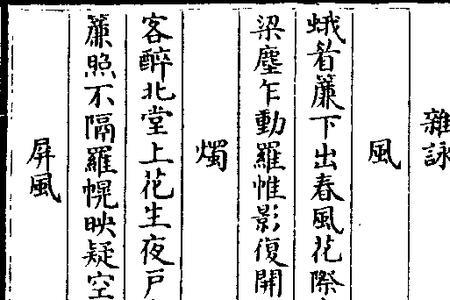 雜詠
風
蛾眉簾下出春風花際
梁塵乍動羅帷影復開
燭
客醉北堂上花生夜戸
簾照不隔羅幌映疑空
屏風